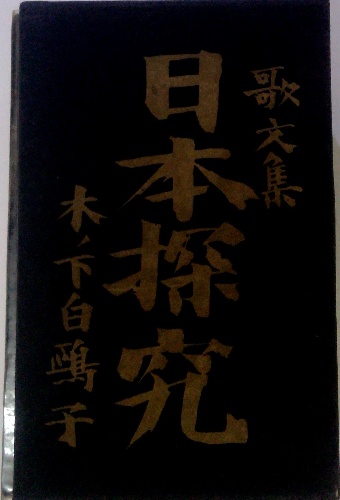 歌文集
日本探究
木ノ下白鴎子